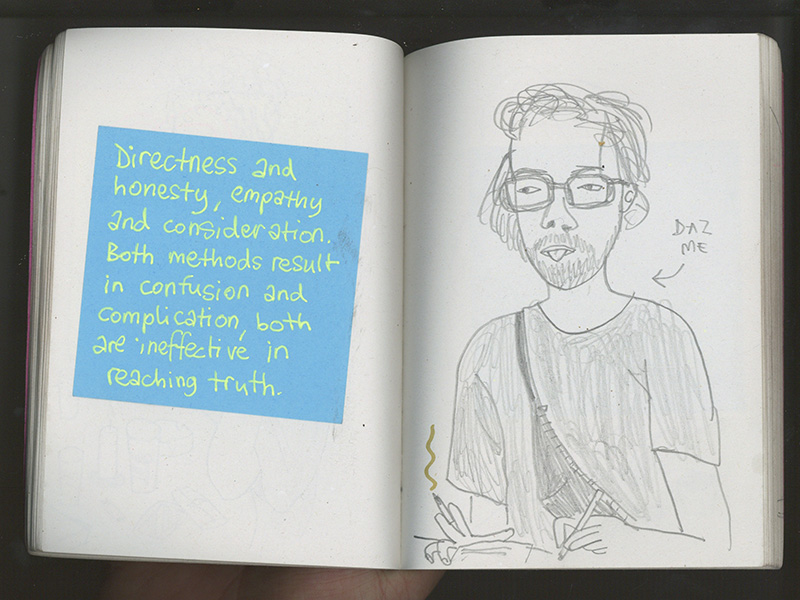 Directness and
honesty, empathy
and consideration.
Both methods result
in confusion and
complication, both
are ineffective in
reaching truth.
DAZ
ME